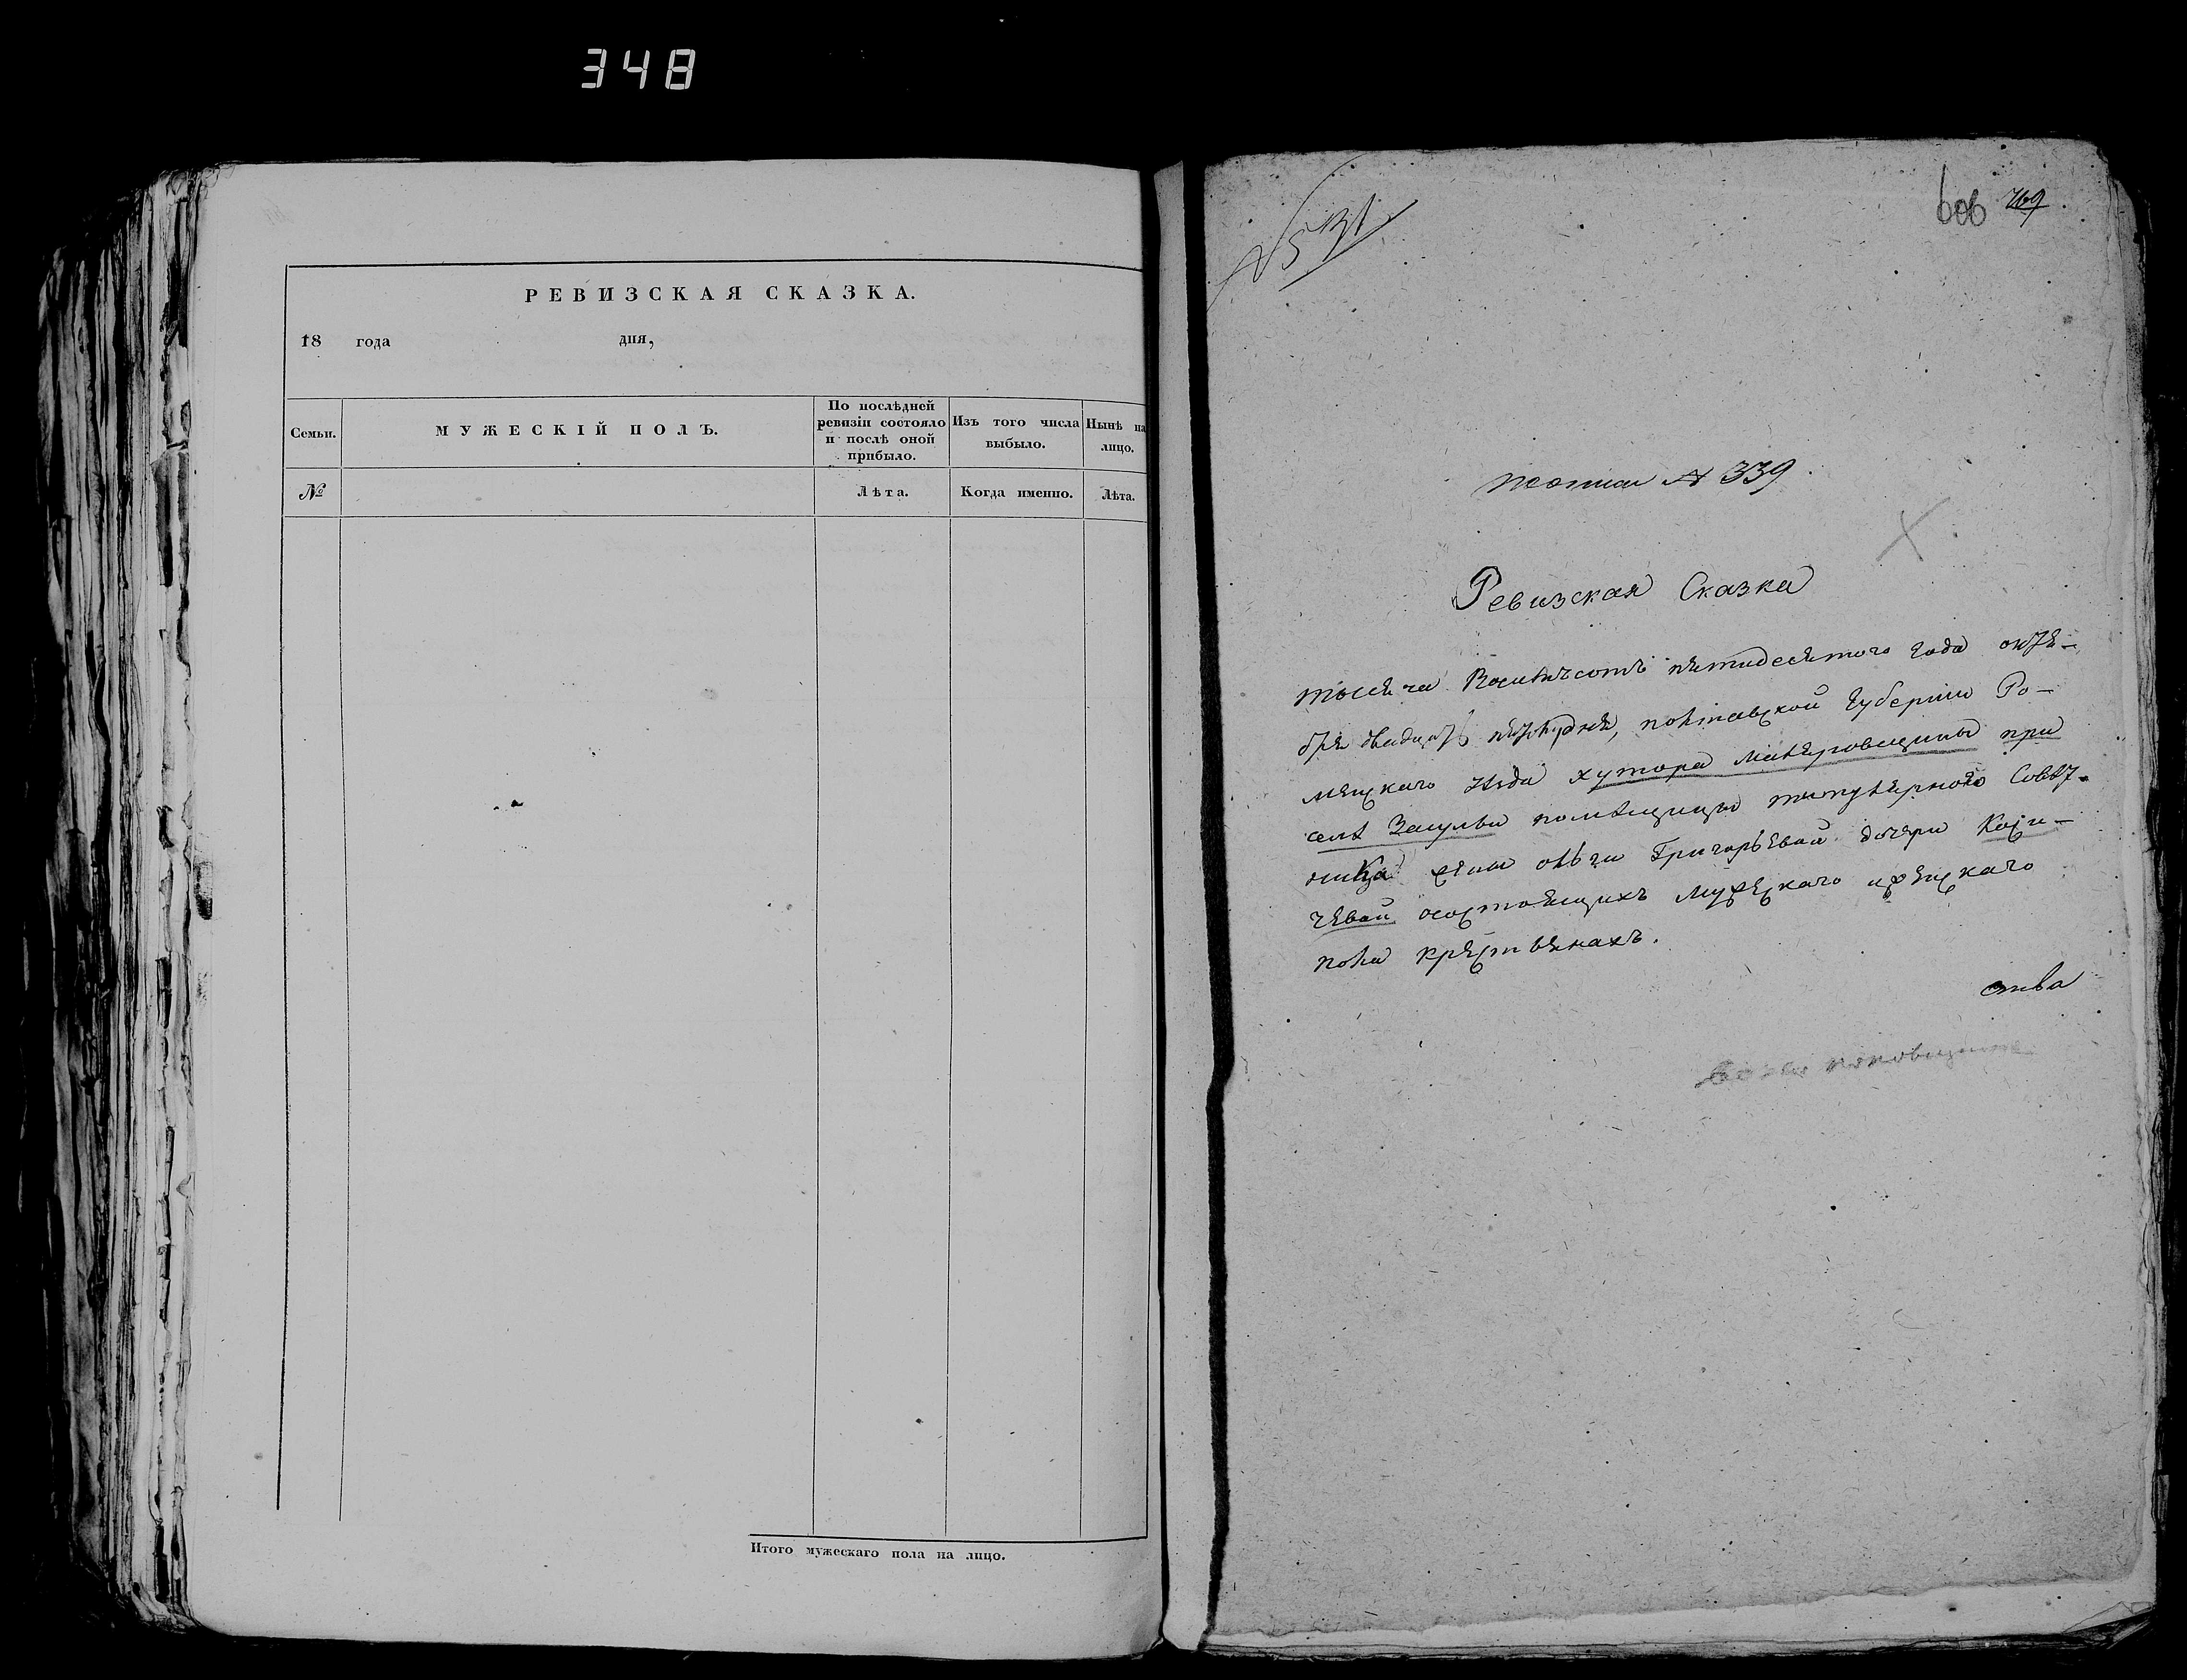 348
РЕВИЗСКАЯ СКАЗКА.
18 года дня,
Семьи.
МУЖЕСКІЙ ПОЛЪ.
По послѣдней
ревизіи состояло
и послѣ оной
прибыло.
Изъ того числа
выбыло.
Нынѣ на
лицо.
№
Лѣта.
Когда именно.
Лѣта.
Итого мужескаго пола на лицо.
№ 531
606 769
№ 339
Ревизская Сказка
тысяча Восемьсотъ пятидесятого года октя-
бря двадцать дня, полтавской Губерніи Ро-
менскаго уезда хутора при
селѣ Засульи помѣщицы титулярного Совѣт-
ника жены Григорьевой дочери
чевой осостоящихъ мужескаго иженскаго
пола крестьянахъ.
ства